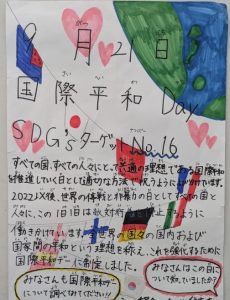 9月21日
国際平和Day
SDG'sターゲットNo.16
すべての国、すべての人々にとって共通の理想である国際平和
を推進していく日として適切な方法で祝うように
2022以後、世界の停戦と非暴力の日としてすべての国と
人々に、この1日は敵対行為を停止するように
働きかけています。世界の国々の国内および
国家間の平和という理想を称え、これを強化するために
国際平和デーに制定しました。
みなさんはこの日に
ついて知っていましたか?
みなさんも国際平和デー
について調べてみてください!!